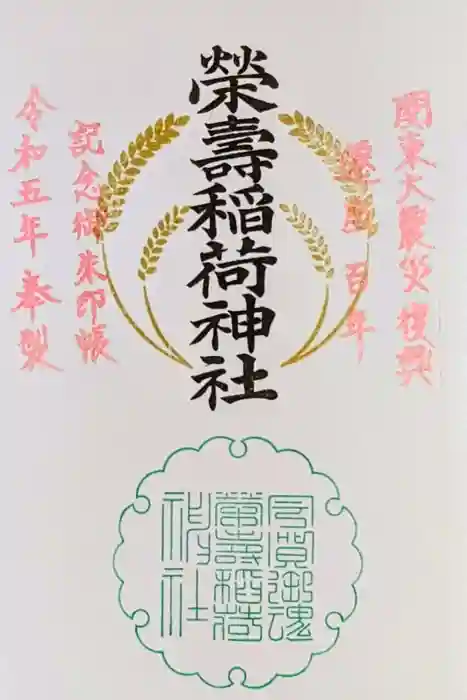 関東大震災復興
遷座百年
榮壽稲荷神社
記念御朱印帳
令和五年奉製
賀御魂
榮壽稲荷
神社